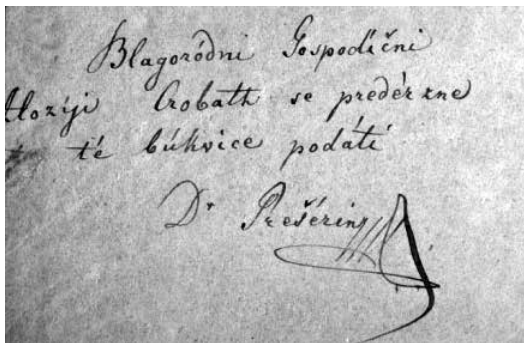 Blagoródni Gospodíčni
Alozíji Crobath se predérzne
té búkvice podáti
Dr Prešérin